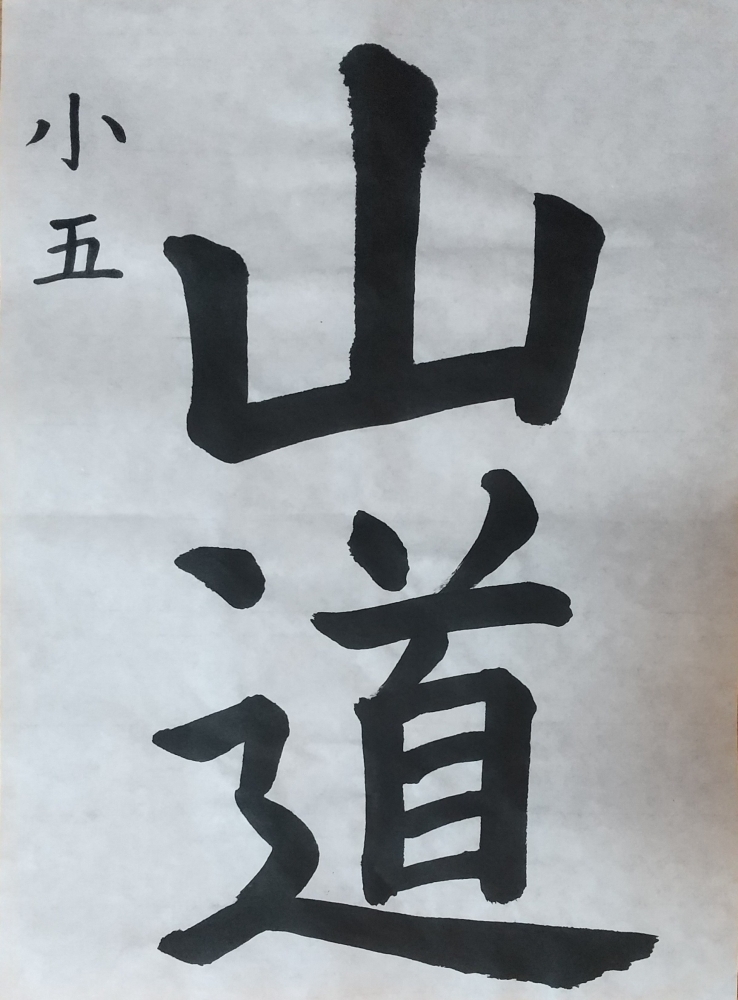 山道
小五